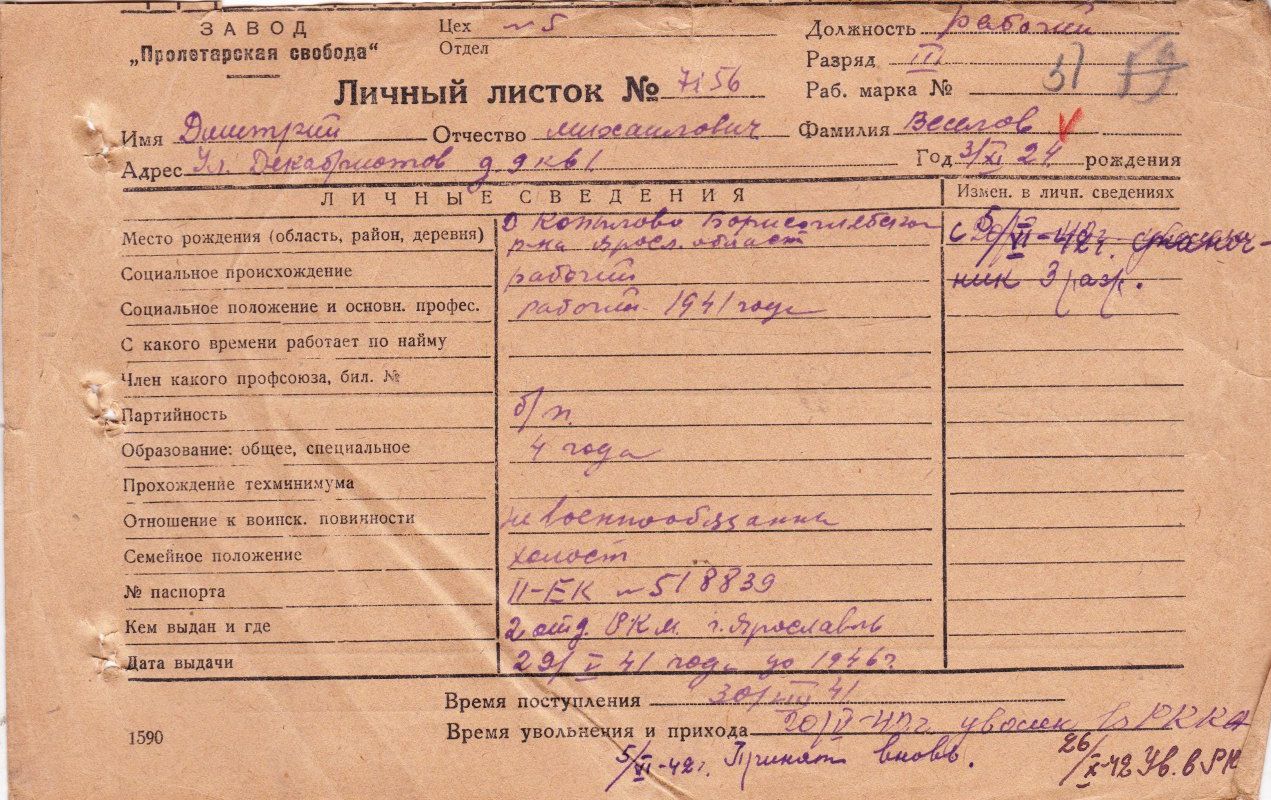 ЗАВОД
„Пролетарская свобода“
Цех №5
Отдел
Должность рабочий
Разряд III
Раб. марка №
Личный листок № 7156
Имя Дмитрий Отчество Михаилович Фамилия Веселов
Адрес Ул. Декабристов д. 9 кв 1 Год 3/XI 24 рождения
ЛИЧНЫЕ СВЕДЕНИЯ
Измен. в личн. сведениях
Место рождения (область, район, деревня) Борисоглебского
р-на Яросл. област
с 5/VI-42г.
ник 3 разр.
Социальное происхождение рабочий
Социальное положение и основн. профес. рабочий 1941 года
С какого времени работает по найму
Член какого профсоюза, бил. №
Партийность б/п.
Образование: общее, специальное 4 года
Прохождение техминимума
Отношение к воинск. повинности
Семейное положение холост
№ паспорта II-ЕК №518839
Кем выдан и где 2 отд. РКМ. г. Ярославль
Дата выдачи 29/V 41 года до 1946г.
Время поступления 30/VIII 41
Время увольнения и прихода 20/V-42г. уволен в РККА
5/VI-42г. Принят вновь.
26/X-42 Ув. в РК
1590